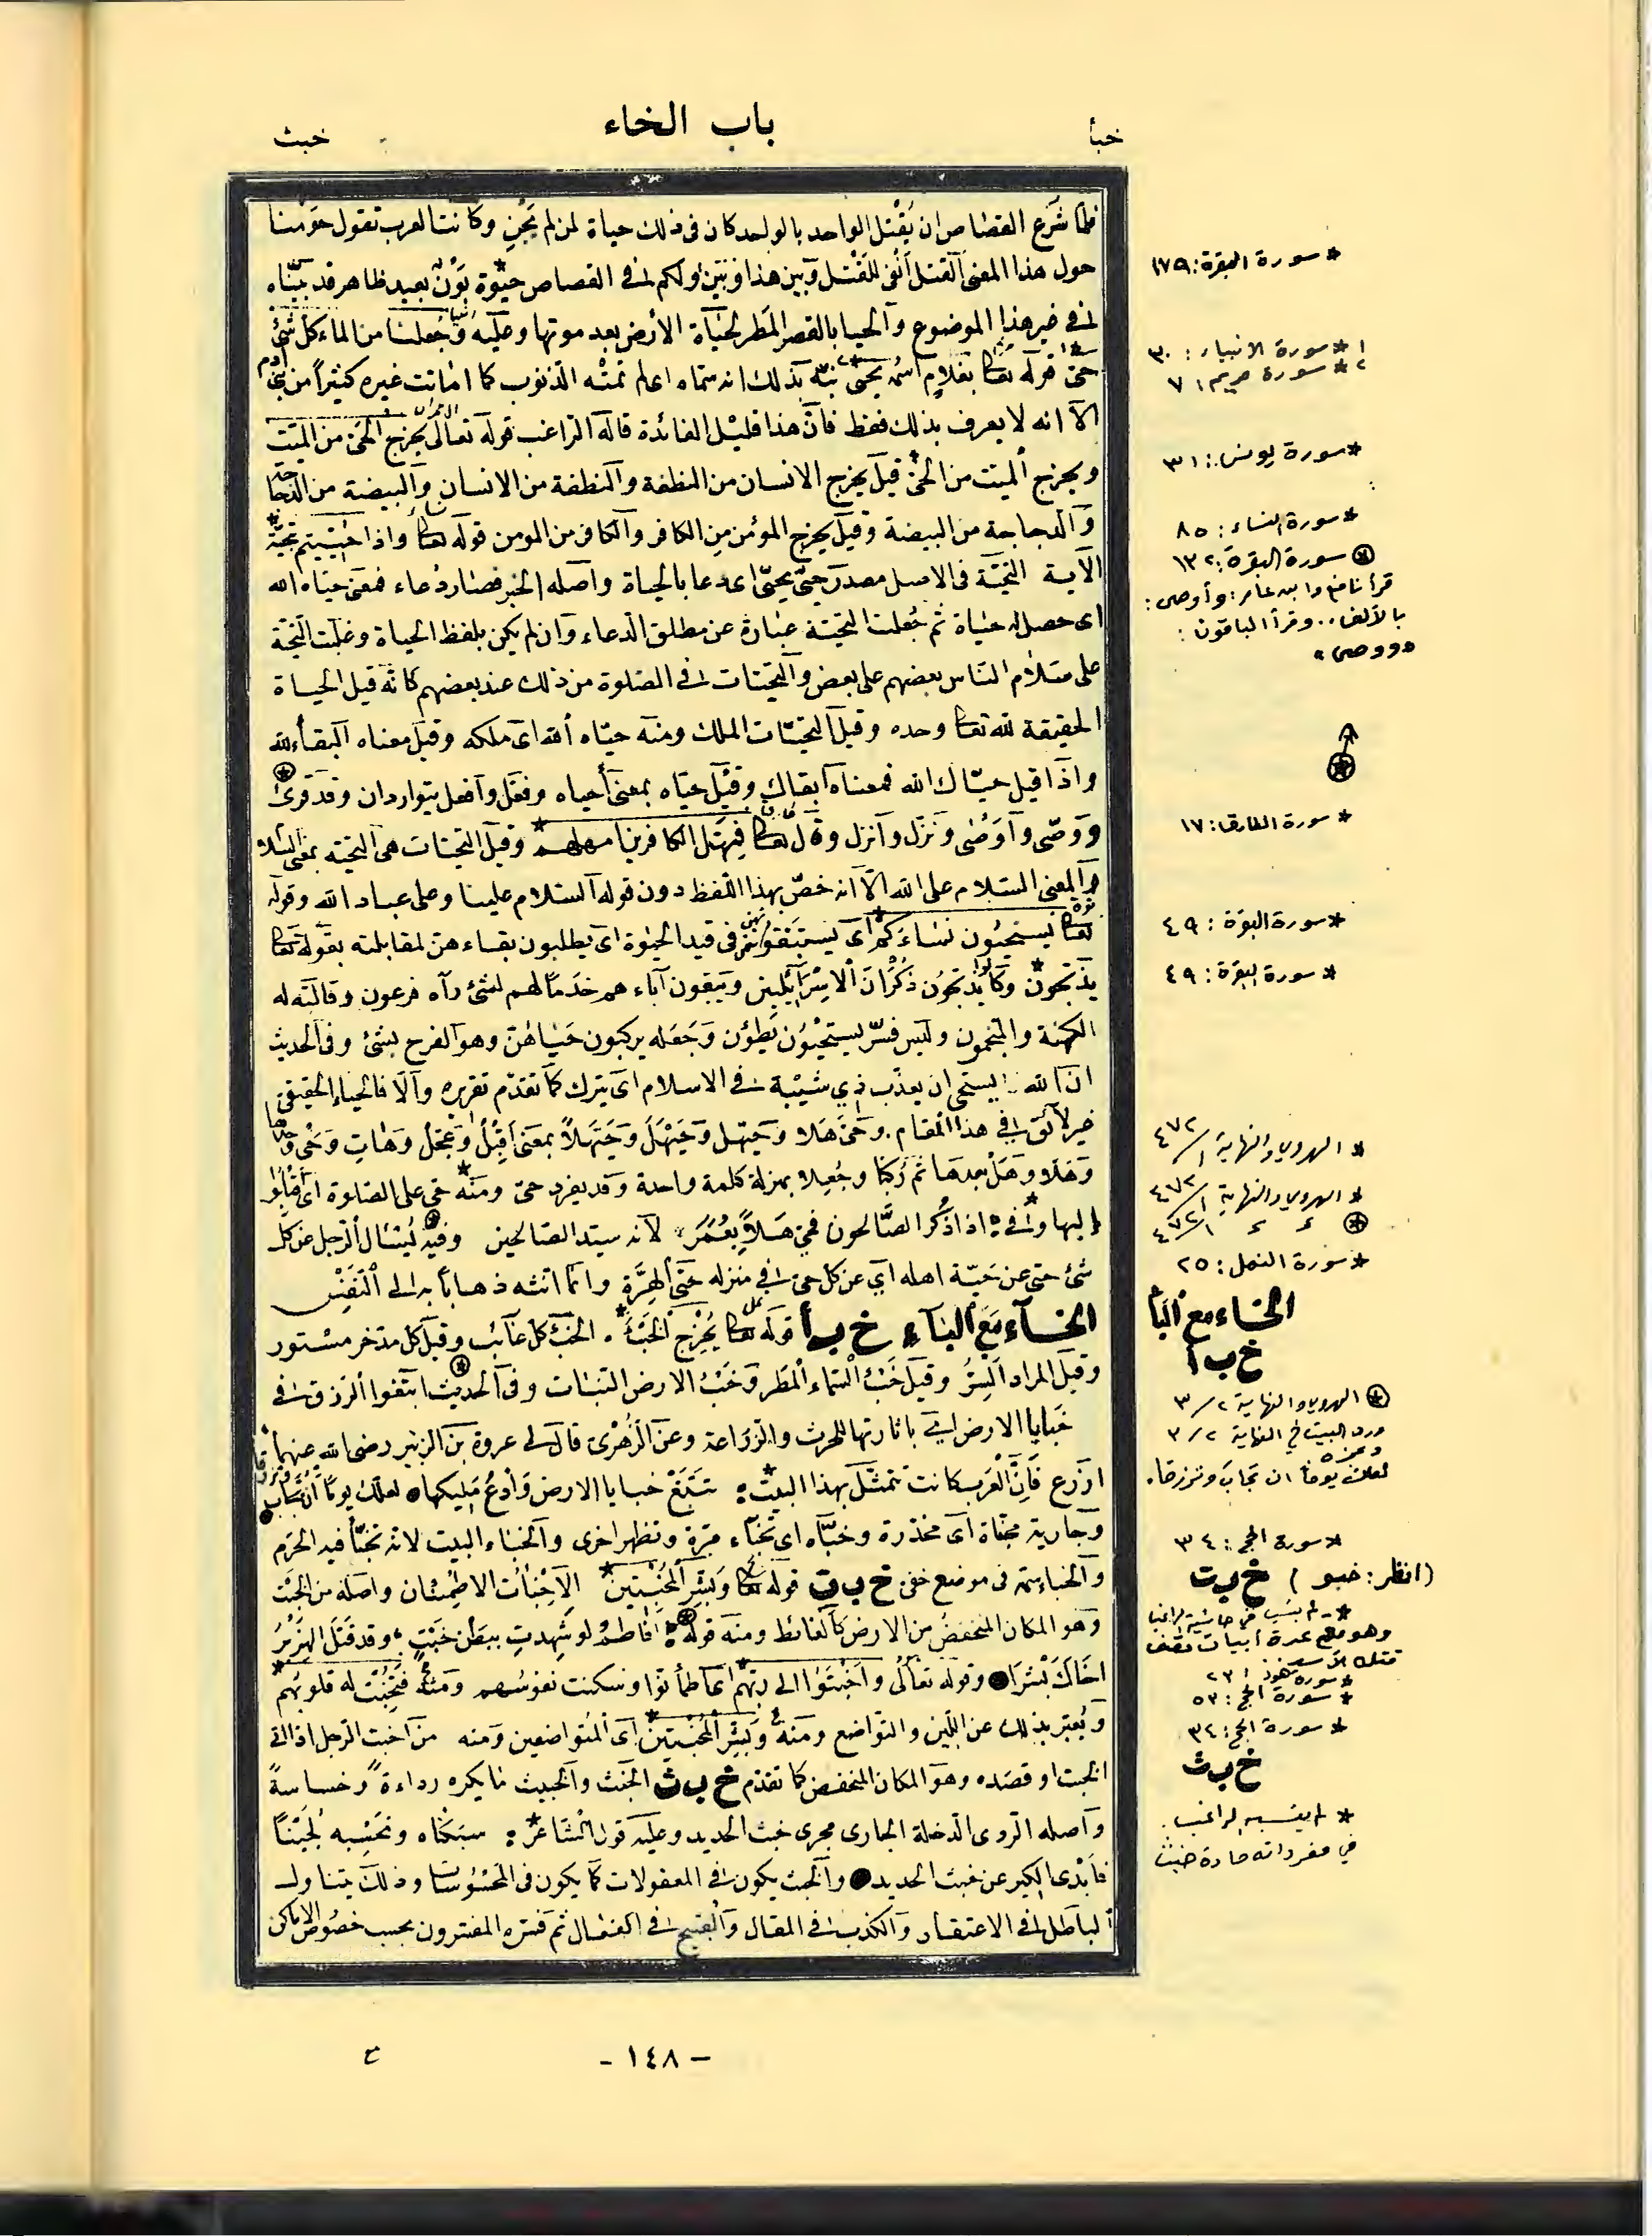 خبأ
باب الخاء
خبث
فلما شرع القصاص ان يقتل الواحد بالواحد كان فى ذلك حياة لمن لم يجن وكانت العرب تقول حومنا
حول هذا المعنى القتل أنفى للقتل وبين هذا وبين ولكم فى القصاص حيوة بون بعيد ظاهر قد بيناه
فى غير هذا الموضوع والحيا بالقصر المطر لحياة الأرض بعد موتها وعليه وجعلنا من الماء كل شئ
حى قوله تعا بغلام اسمه يحيى نبه بذلك انه سماه اعلم تمته الذنوب كما اماتت غيره كثيراً من بنى ادم
الا انه لا يعرف بذلك فقط فان هذا قليل الفائدة قاله الراغب قوله تعالى يخرج الحى من الميت
ويخرج الميت من الحى قيل يخرج الانسان من النطفة والنطفة من الانسان والبيضة من الدجاجة
والدجاجة من البيضة وقيل يخرج المؤمن من الكافر والكافر من المومن قوله تعا واذا حييتم بتحية
الآية التحية فى الاصل مصدر حيى يحيى اى دعا بالحياة واصله الخبر فصار دعاء فمعنى حياه الله
اى حصل له حياة ثم جعلت التحية عبارة عن مطلق الدعاء وان لم يكن بلفظ الحياة وغلبت التحية
على سلام الناس بعضهم على بعض والتحيات فى الصلوة من ذلك عند بعضهم كانه قيل الحياة
الحقيقة لله تعا وحده وقيل التحيات الملك ومنه حياه الله اى ملكه وقيل معناه البقاء لله
واذا قيل حياك الله فمعناه ابقاك وقيل حياه بمعنى أحياه وفعل وافعل يتواردان وقد قرئ
ووصى واوصى ونزل وانزل وقال تعا فمهل الكافرين امهلهم وقيل التحيات هى التحية بمعنى السلام
والمعنى السلام على الله الا انه خص بهذا اللفظ دون قوله السلام علينا وعلى عباد الله وقوله
تعا يستحيون نساءكم اى يستبقونهن فى قيد الحيوة اى يطلبون بقاءهن لمقابلته بقوله تعا
يذبحون وكانوا يذبحون ذكران الاسرائيلين ويبقون آباءهم خدما لهم لشئ رآه فرعون وقالته له
الكهنة والمنجمون وليس فسر يستحيون يطؤن وجعله يركبون حياهن وهو الفرج بشئ وفى الحديث
ان الله يستحى ان يعذب ذي شيبة فى الاسلام اى يترك كما تقدم تقريره والا فالحياء الحقيقى
غير لائق فى هذا المقام. وحى هلا وحيهل وحيهل وحيهلاً بمعنى اقبل وعجل وهات
وهلا وهل بعدها ثم ركبا وجعلا بمنزلة كلمة واحدة وقد يفرد حى ومنه حى على الصلوة اى اقبلوا
إليها وفى اذا ذكر الصالحون فحى هلاً بعمر لانه سيد الصالحين وفيه ليسأل الرجل عن كل
شئ حتى عن حية اهله اى عن كل حى فى منزله حتى الهرة وانما انثه ذهاباً به الى النفس
الخاء مع الباء خ ب أ قوله تعا يخرج الخبء. الخبء كل غائب وقيل كل مدخر مستور
وقيل المراد السر وقيل خبء السماء المطر وخبء الارض النبات وفى الحديث ابتغوا الرزق فى
خبايا الارض اى باثارتها للحرث والزراعة وعن الزهرى قال لى عروة بن الزبير رضى الله عنهما
ازرع فان العرب كانت تتمثل بهذا البيت: تتبع خبايا الارض وادع مليكها لعلك يوما ان تجاب وترزقا
وجارية مخبأة اى مخدرة وخبأه اى تخبأء مرة وتظهر اخرى والخباء البيت لانه تخبأ فيه الحرم
والخباء سمة فى موضع خفى خ ب ت قوله تعا وبشر المخبتين الاخبات الاطمئنان واصله من الخبت
وهو المكان المنخفض من الارض كالغائط ومنه قوله افاطم لو شهدت ببطن خبت وقد قتل الهزبر
اخاك بشرا وقوله تعالى واخبتوا الى ربهم اى اطمأنوا وسكنت نفوسهم ومنه فتخبت له قلوبهم
ويعبر بذلك عن اللين والتواضع ومنه وبشر المخبتين اى المتواضعين ومنه من اخبت الرجل اذا اتى
الخبت او قصده وهو المكان المنخفض كما تقدم خ ب ث الخبث والخبيث ما يكره رداءة وخساسة
واصله الردى الدخلة الجارى مجرى خبث الحديد وعليه قول الشاعر: سبكناه ونحسبه لجيناً
فابدى الكير عن خبث الحديد والخبث يكون فى المعقولات كما يكون فى المحسوسات وذلك يتناول
الباطل فى الاعتقاد والكذب فى المقال والقبيح فى الفعال ثم فسره المفسرون بحسب خصوص الاماكن
* سورة البقرة: ١٧٩
١* سورة الانبياء: ٣٠
٢* سورة مريم: ٧
* سورة يونس: ٣١
* سورة النساء: ٨٥
⊛ سورة البقرة: ١٣٢
قرأ نافع وابن عامر: وأوصى:
بالألف.. وقرأ الباقون:
«ووصى»
* سورة الطارق: ١٧
* سورة البقرة: ٤٩
* سورة البقرة: ٤٩
* الهروى والنهاية ١/٤٧٢
* الهروى والنهاية ١/٤٧٢
⊛ ء ء ١/٤٧٢
* سورة النمل: ٢٥
الخاء مع الباء
خ ب أ
⊛ الهروى والنهاية ٢/٣
ورد البيت فى النهاية ٢/٣
وعجزه
لعلك يوما ان تجاب وترزقا.
* سورة الحج: ٣٤
خ ب ت (انظر: خبو)
* لم ينسب في حاشية الراغب
وهو مع عدة أبيات تصف
قتله الأسد
* سورة هود: ٢٣
* سورة الحج: ٥٣
* سورة الحج: ٣٤
خ ب ث
* لم ينسبه الراغب.
في مفرداته مادة خبث
- ١٤٨ -